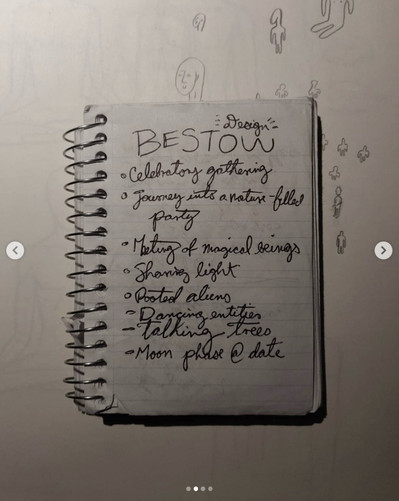 "Design"
BESTOW
Celebratory gathering
Journey into a nature-filled
party
Meeting of magical beings
Sharing light
Rooted aliens
Dancing entities
talking trees
Moon phase @ date